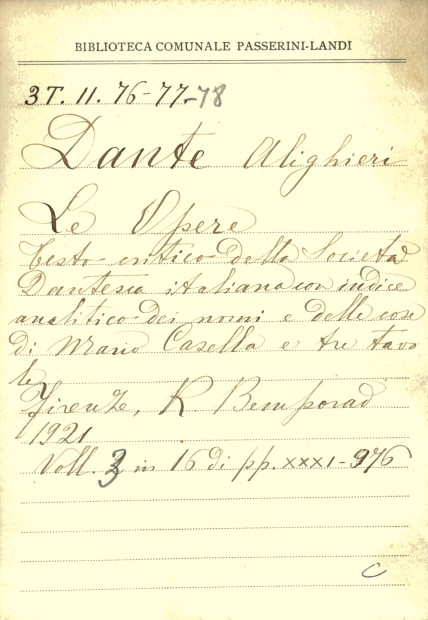 BIBLIOTECA COMUNALE PASSERINI-LANDI
3T. 11. 76-77-78
Dante Alighieri
Le Opere
Testo critico della Società
Dantesca italiana con indice
analitico dei nomi e delle cose
di Mario Casella e tre tavo
le
Firenze, R. Bemporad
1921
Voll. 3 in 16 di pp. XXXI-976
C